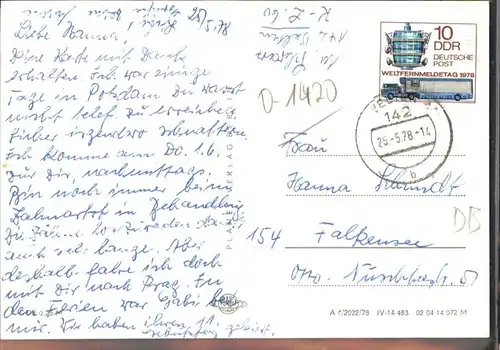 25/5.78
Liebe Hanna,
Deine Karte mit Dank
erhalten. Ich war einige
Tage in Potsdam. Du warst
nicht telef. zu erreichen
Sicher irgendwo schnattern.
Ich komme am Do. 1.6.
für Dir, nachmittags.
Bin noch immer beim
Zahnarzt in Behandlung
Die Zähne
auch sehr lange. Aber
deshalb fahre ich doch
mit Dir nach Prag. In
den Ferien war Gabi bei
mir. Wir haben ihren 11.
Geburtstag gefeiert.
142
K-Z. 60
D-1420
10
DDR
DEUTSCHE
POST
WELTFERNMELDETAG 1978
142
25.-5.78.-14
b
Frau
Hanna Schmidt
DB
154 Falkensee
Otto-Nuschkestr. 51
PLANET-VERLAG
A 1/2022/78 IV-14-483 02 04 14 072 M